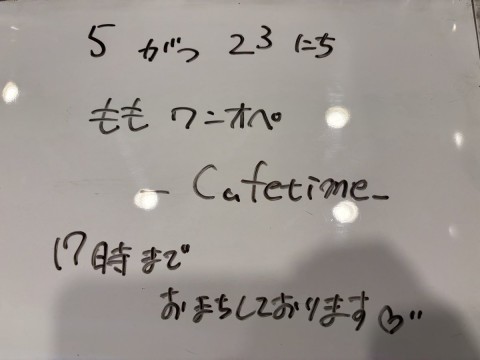 5 がつ 23 にち
もも ワンオペ
- Cafetime -
17時まで
おまちしております♡"